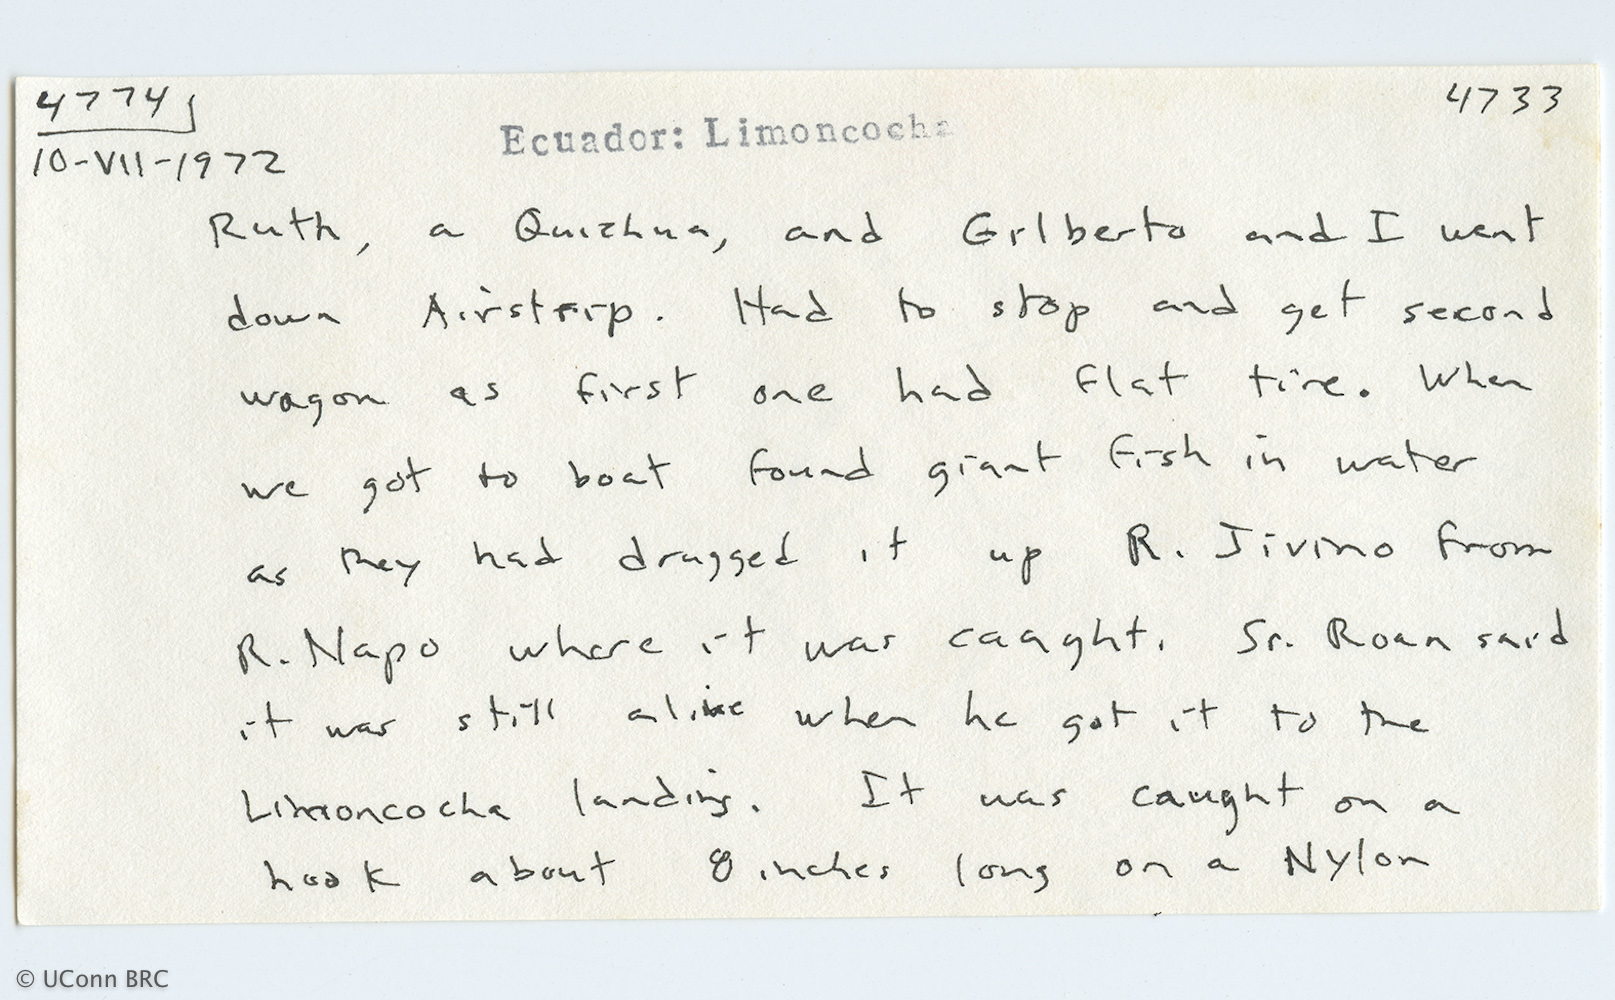 4774
4733
10-VII-1972
Ecuador: Limoncocha
Ruth, a Quichua, and Gilberto and I went
down Airstrip. Had to stop and get second
wagon as first one had flat tire. When
we got to boat found giant fish in water
as they had dragged it up R. Jivino from
R. Napo where it was caught. Sr. Roan said
it was still alive when he got it to the
Limoncocha landing. It was caught on a
hook about 8 inches long on a Nylon
© UConn BRC